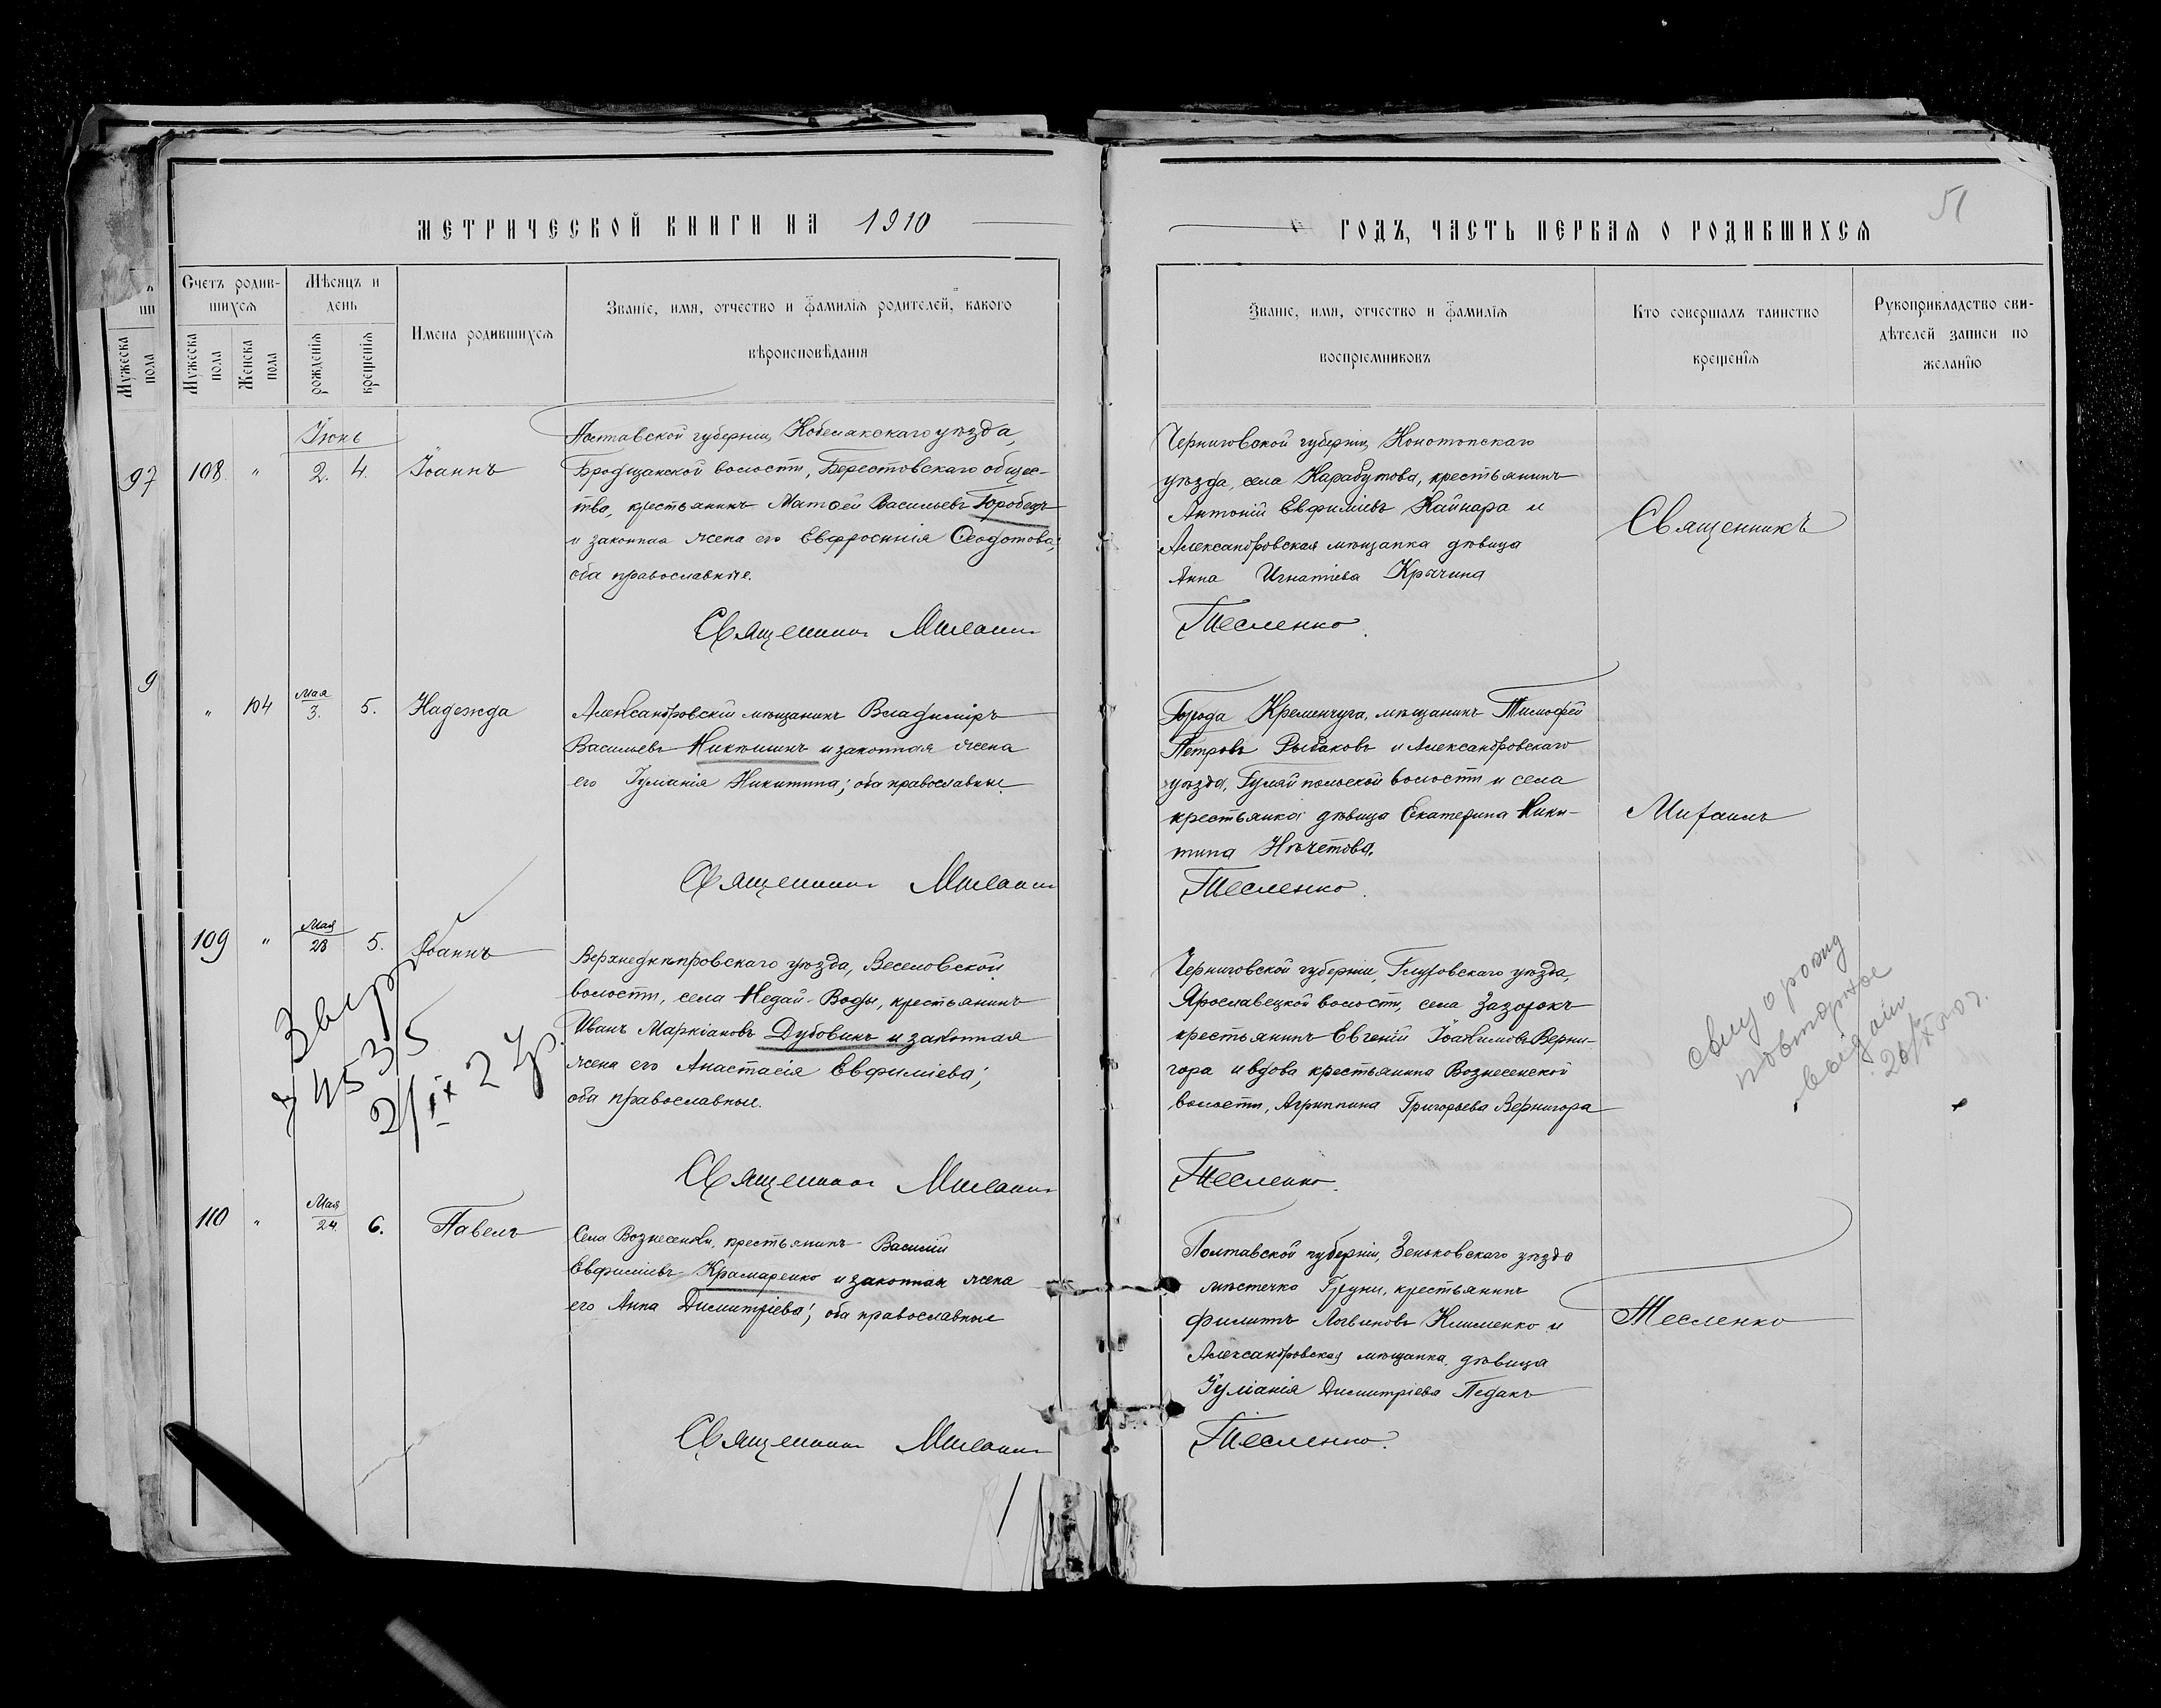 МЕТРИЧЕСКОЙ КНИГИ НА 1910
Счетъ родив-
шихся
Мужеска пола
Женска пола
Мѣсяцъ и
день
рожденія
крещенія
Имена родившихся
Званіе, имя, отчество и фамилія родителей, какого
вѣроисповѣданія
Мужеска пола
97
9
Іюнь
108. " 2. 4. Іоаннъ
Полтавской губерніи, Кобелякскаго уѣзда,
Бродщанской волости, Берестовскаго общес-
тва, крестьянинъ Матѳей Васильевъ Горобецъ
и законная жена его Евфросинія Ѳеодотова;
оба православные.
Священникъ
" 104 Мая 3. 5. Надежда
Александровскій мѣщанинъ Владиміръ
Васильевъ Никитинъ и законная жена
его Іуліанія Никитина; оба православные
Священникъ
109 " Мая 28 5. Іоаннъ
Верхнеднѣпровскаго уѣзда, Веселовской
волости, села Недай-Воды, крестьянинъ
Иванъ Маркіановъ Дубовикъ и законная
жена его Анастасія Евфиміева;
оба православные.
4535
Священникъ
110 " Мая 24 6. Павелъ
Села Вознесенки, крестьянинъ Василій
Евфиміевъ Крамаренко и законная жена
его Анна Димитріева; оба православные
Священникъ
51
ГОДЪ, ЧАСТЬ ПЕРВАЯ О РОДИВШИХСЯ
Званіе, имя, отчество и фамилія
воспріемниковъ
Кто совершалъ таинство
крещенія
Рукоприкладство сви-
дѣтелей записи по
желанію
Черниговской губерніи, Конотопскаго
уѣзда, села Карабутова, крестьянинъ
Антоній Евфиміевъ Кайнара и
Александровская мѣщанка дѣвица
Анна Игнатіева Кричина
Тесленко.
Священникъ
Города Кременчуга, мѣщанинъ Тимофей
Петровъ Рыбаковъ и Александровскаго
уѣзда, Гуляйпольской волости и села
крестьянка дѣвица Екатерина Ники-
тина Нѣчетова.
Тесленко.
Михаилъ
Черниговской губерніи, Глуховскаго уѣзда,
Ярославецкой волости, села Зазорокъ
крестьянинъ Евгеній Іоакимовъ Верни-
гора и вдова крестьянка Вознесенской
волости, Агриппина Григорьева Вернигора
Тесленко.
повторное
Полтавской губерніи, Зеньковскаго уѣзда
мѣстечка Груни, крестьянинъ
Филиппъ Логвиновъ Клименко и
Александровская мѣщанка, дѣвица
Іуліанія Димитріева Педакъ
Тесленко.
Тесленко